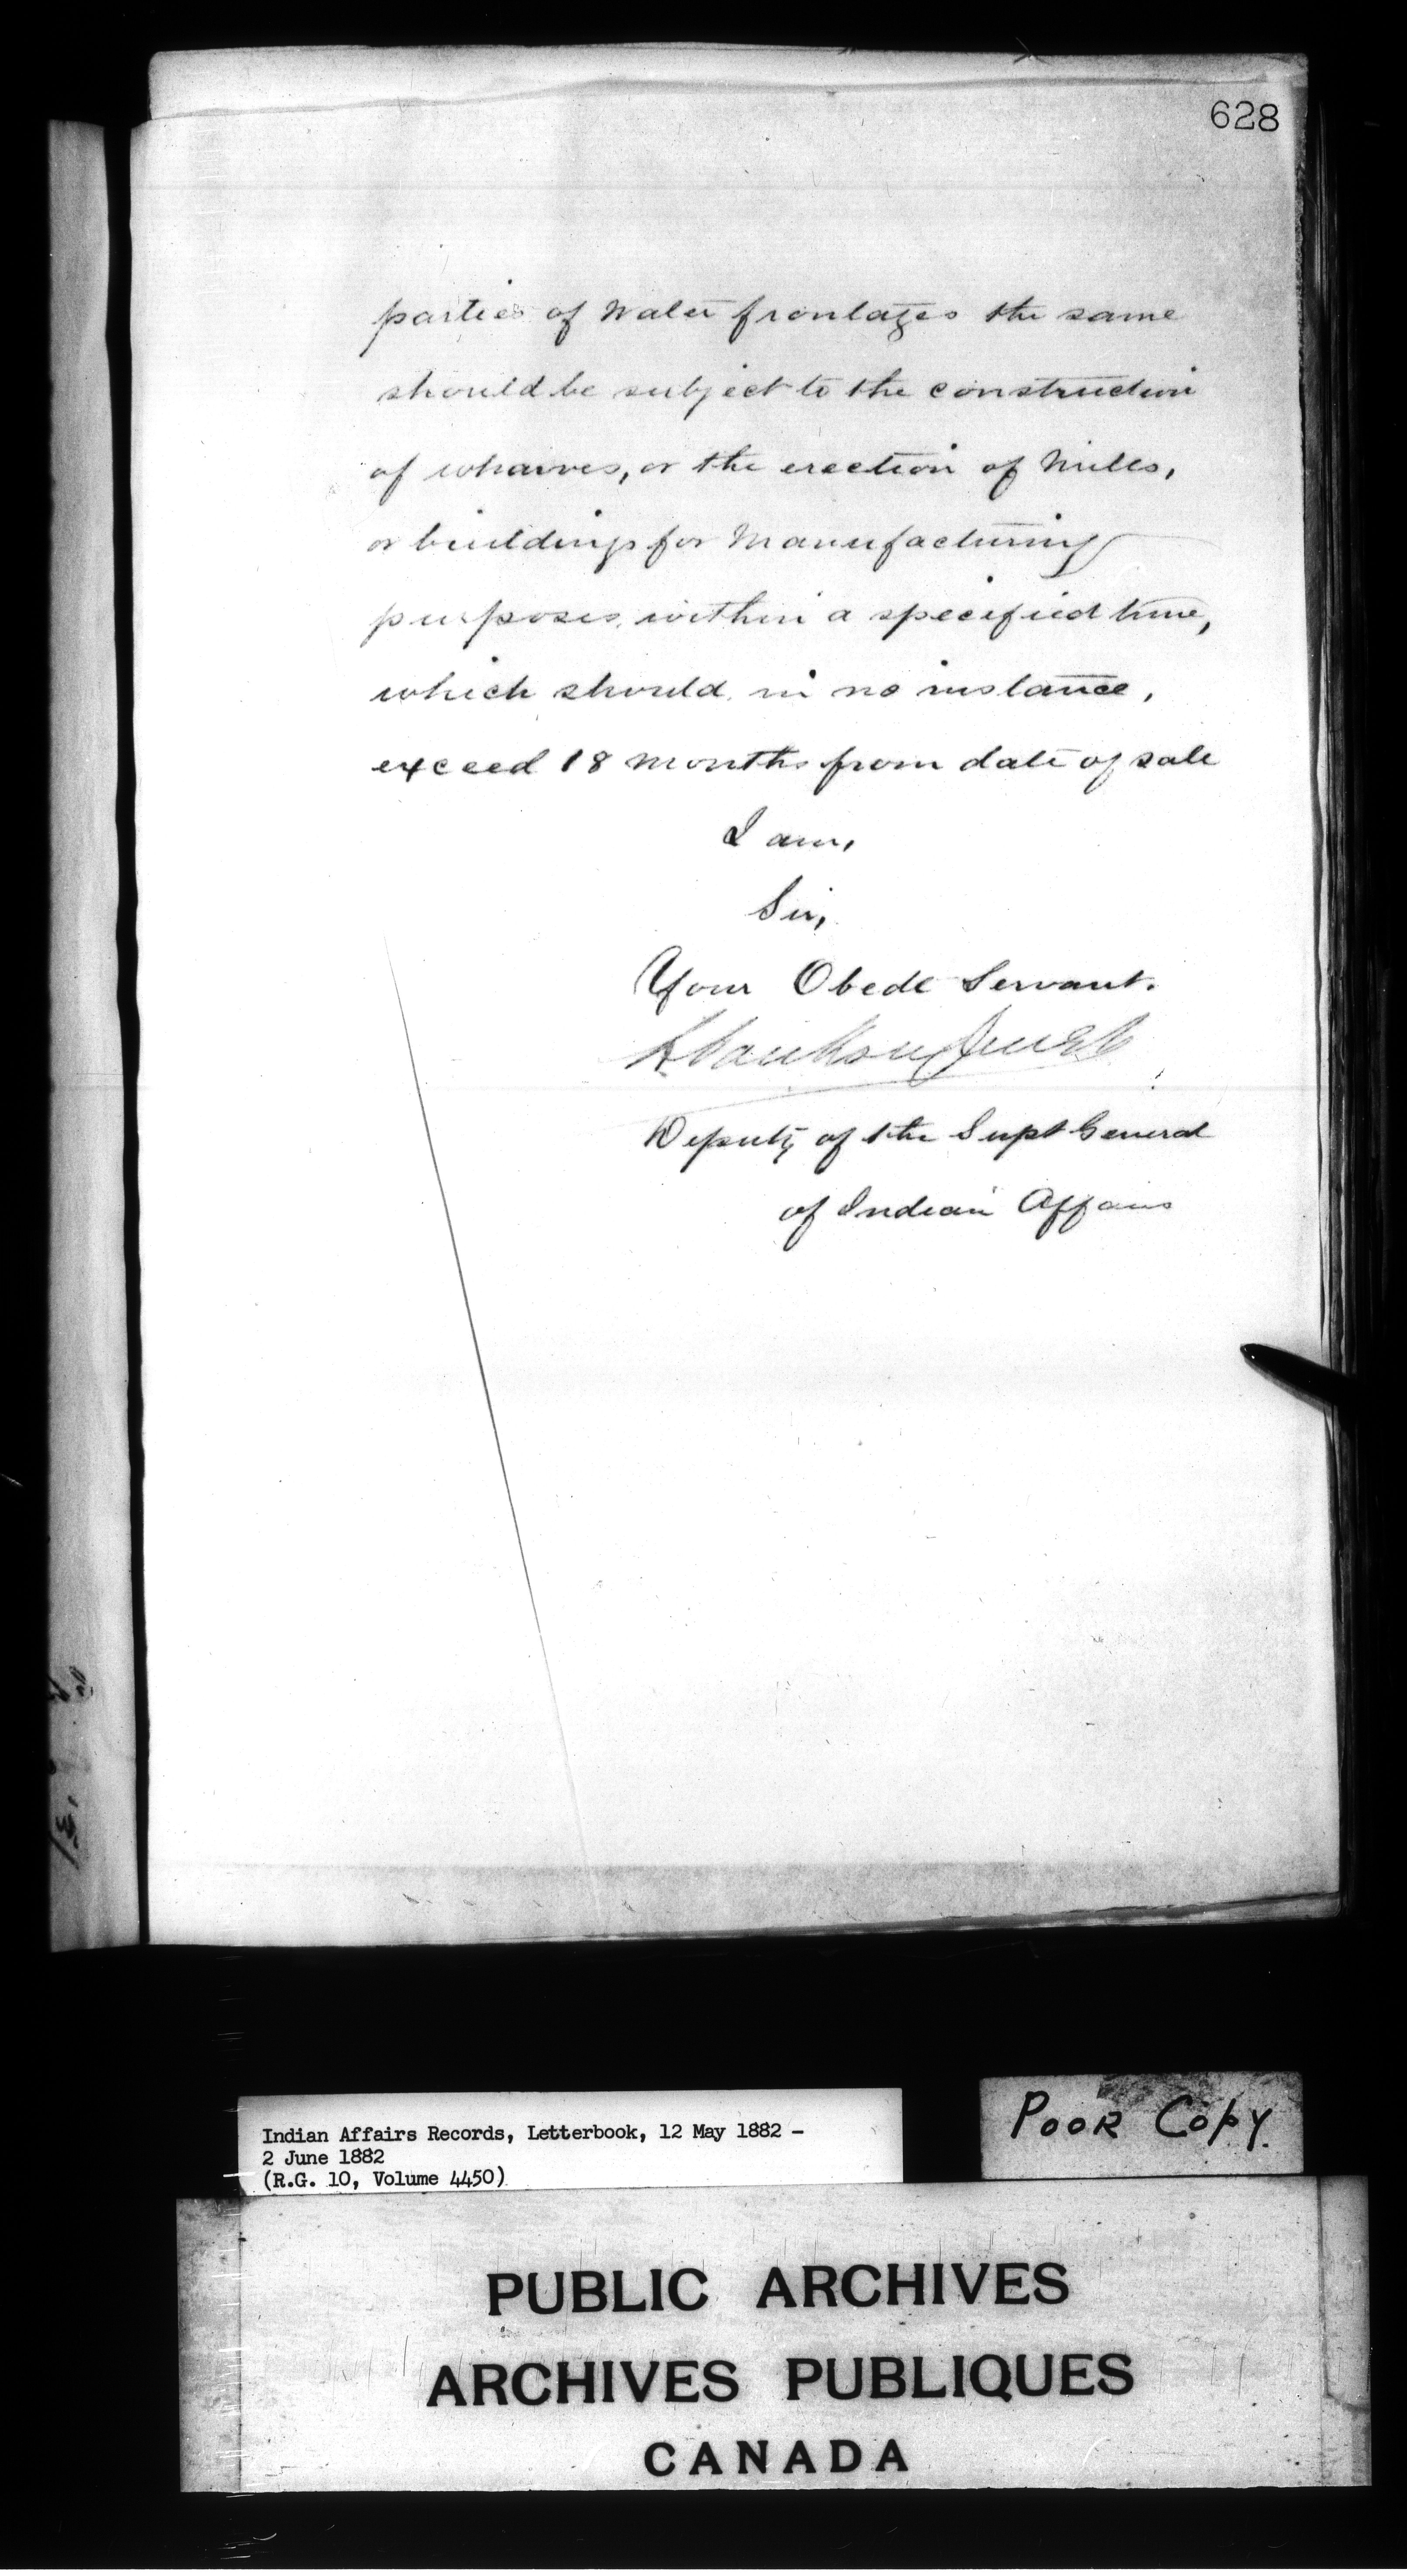 628
parties of Water frontages the same
should be subject to the construction
of wharves, or the erection of Mills,
or buildings for Manufacturing
purposes, within a specified time,
which should, in no instance,
exceed 18 months from date of sale
I am,
Sir,
Your Obedt Servant.
L VanKoughnet
Deputy of the Supt General
of Indian Affairs
Indian Affairs Records, Letterbook, 12 May 1882 -
2 June 1882
(R.G. 10, Volume 4450)
POOR COPY.
PUBLIC ARCHIVES
ARCHIVES PUBLIQUES
CANADA